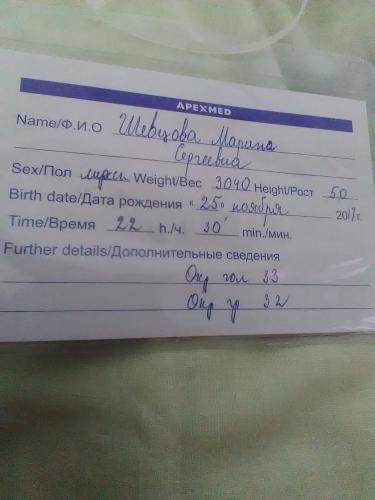 APEXMED
Name/Ф.И.О Шевцова Марина
Сергеевна
Sex/Пол Weight/Вес 3040 Height/Рост 50
Birth date/Дата рождения "25" ноября 2017г.
Time/Время 22 h./ч. 30 min./мин.
Further details/Дополнительные сведения
Окр гол 33
Окр гр 32